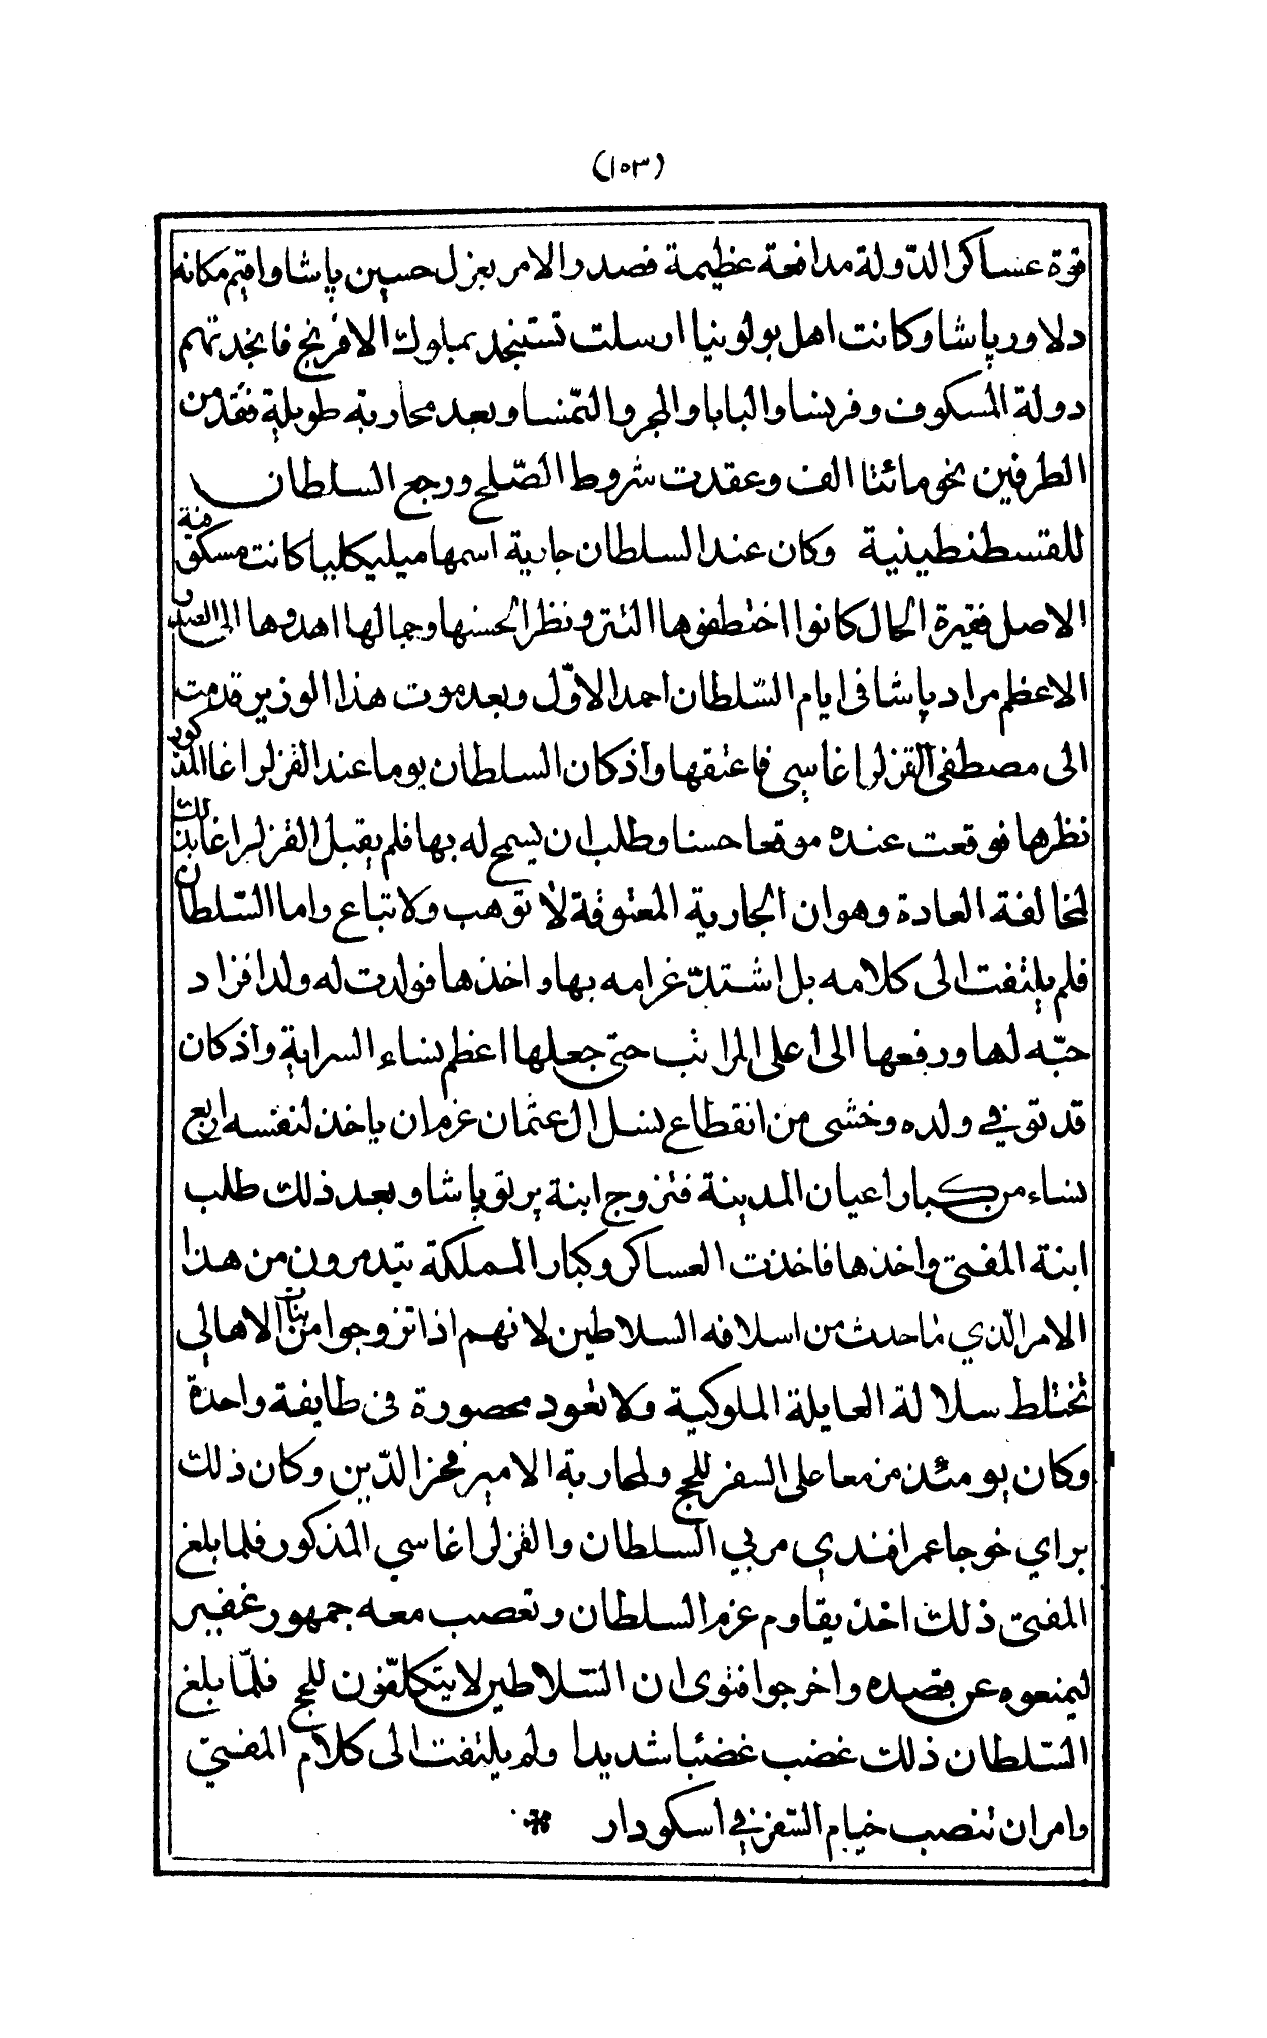 (١٠٣)
قوة عساكر الدّولة مدافعة عظيمة فصدر الامر بعزل حسين پاشا واقيم مكانه
دلاور پاشا وكانت اهل بولونيا ارسلت تستنجد بملوك الافرنج فانجدتهم
دولة المسكوف وفرنسا والبابا والمجر والنّمسا وبعد محاربة طويلة فقد من
الطرفين نحو مائتا الف وعقدت شروط الصّلح ورجع السلطان
للقسطنطينية وكان عند السلطان جارية اسمها ميليكليا كانت مسكوفية
الاصل فقيرة الحال كانوا اختطفوها التتر ونظرا لحسنها وجمالها اهدوها الى الصدر
الاعظم مراد پاشا فى ايام السّلطان احمد الاوّل وبعد موت هذا الوزير قدمت
الى مصطفى القزلراغاسي فاعتقها واذ كان السلطان يوما عند القزلراغا المذكور
نظرها فوقعت عنده موقعا حسنا وطلب ان يسمح له بها فلم يقبل القزلراغا بذلك
لمخالفة العادة وهو ان الجارية المعتوقة لا توهب ولا تباع واما السّلطان
فلم يلتفت الى كلامه بل اشتدّ غرامه بها واخذها فولدت له ولدا فزاد
حبّه لها ورفعها الى اعلى المراتب حتى جعلها اعظم نساء السراية واذ كان
قد توفي ولده وخشى من انقطاع نسل ال عثمان عزم ان ياخذ لنفسه اربع
نساء من كبار اعيان المدينة فتزوج ابنة پرتو پاشا وبعد ذلك طلب
ابنة المفتى واخذها فاخذت العساكر وكبار المملكة يتدمرون من هذا
الامر الّذي ما حدث من اسلافه السلاطين لانهم اذا تزوجوا من بنات الاهالي
تختلط سلالة العايلة الملوكية ولا تعود محصورة فى طايفة واحدة
وكان يومئذ مزمعا على السفر للحج ولمحاربة الامير فخر الدّين وكان ذلك
براي خوجا عمر افندي مربي السلطان والقزلراغاسي المذكور فلما بلغ
المفتى ذلك اخذ يقاوم عزم السلطان وتعصب معه جمهور غفير
ليمنعوه عن قصده واخرجوا فتوى ان السّلاطين لا يتكلّفون للحج فلمّا بلغ
السّلطان ذلك غضب غضبا شديدا ولم يلتفت الى كلام المفتي
وامر ان تنصب خيام السّفر في اسكودار